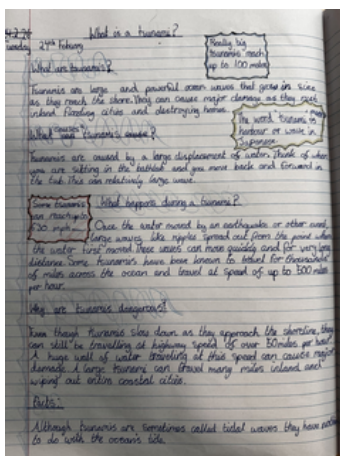 What is a tsunami?
24th February
Really big
tsunamis reach
up to 100 miles
What are tsunamis?
Tsunamis are large and powerful ocean waves that grow in size
as they reach the shore. They can cause major damage as they rush
inland flooding cities and destroying homes.
The word tsunami is
harbour or wave in
Japanese
What causes tsunamis
Tsunamis are caused by a large displacement of water. Think of when
you are sitting in the bathtub and you move back and forward in
the tub. This can relatively large wave.
Some tsunamis
can reach up to
520 mph
What happens during a tsunami?
Once the water moved by an earthquake or other event,
large waves, like ripples spread out from the point where
the water first moved. These waves can move quickly and for very long
distance. Some tsunamis have been known to travel for thousands
of miles across the ocean and travel at speed of up to 500 miles
per hour.
Why are tsunamis dangerous?
Even though tsunamis slow down as they approach the shoreline, they
can still be travelling at highway speed of over 50 miles per hour.
A huge wall of water traveling at this speed can cause major
damage. A large tsunami can travel many miles inland and
wiping out entire coastal cities.
Facts:
Although tsunamis are sometimes called tidal waves they have
to do with the ocean's tide.